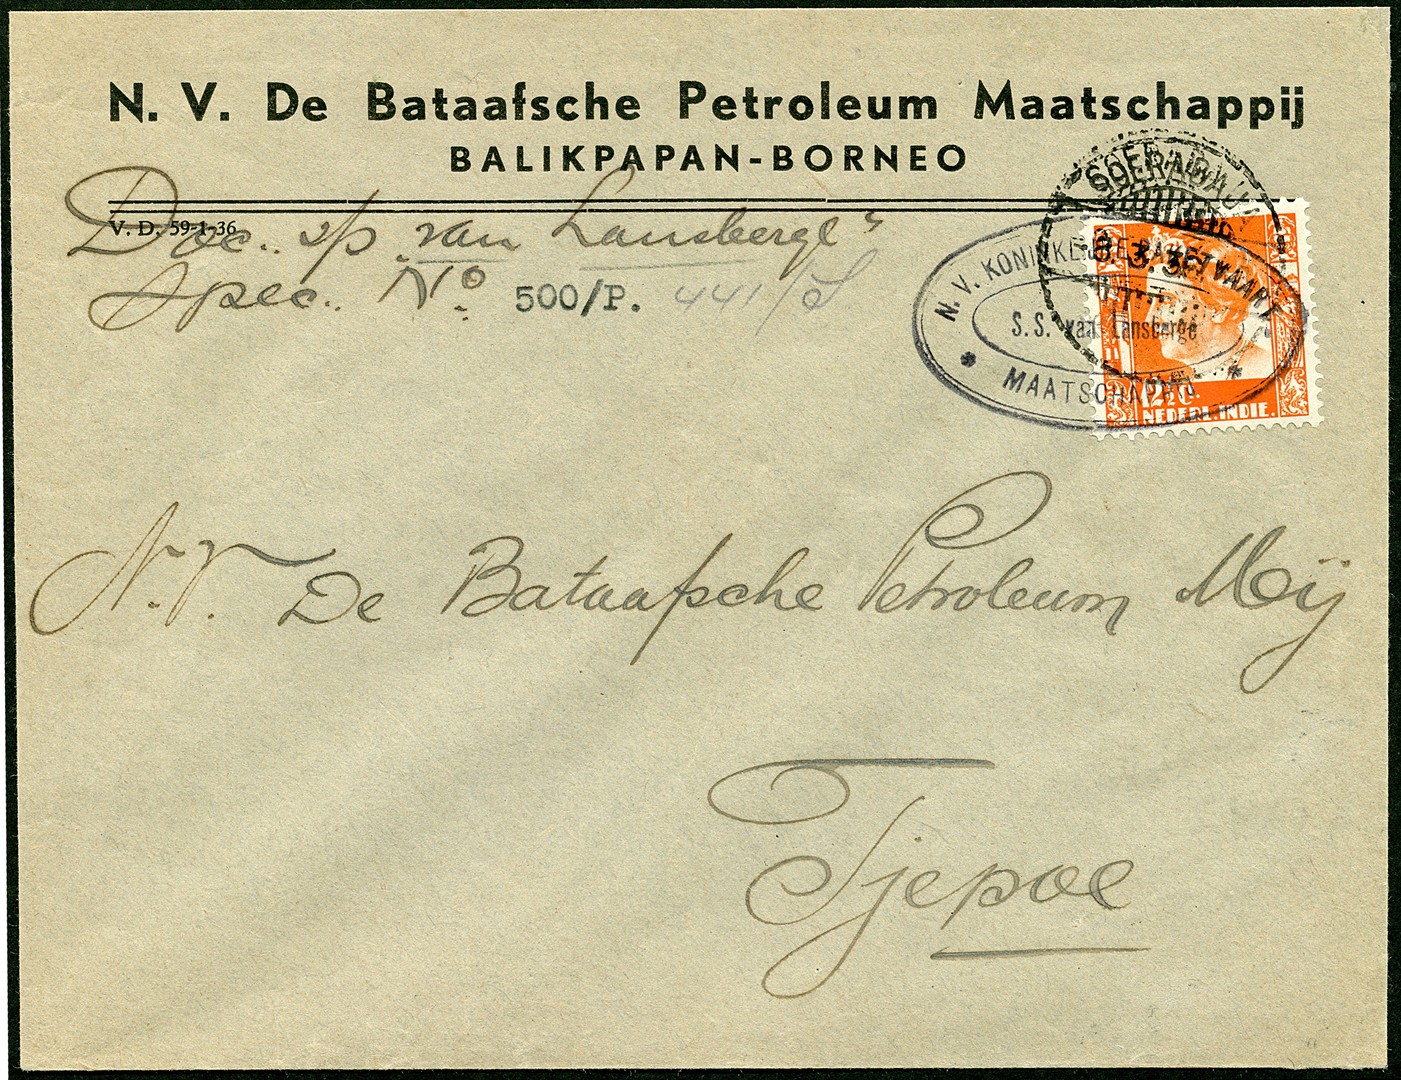 N. V. De Bataafsche Petroleum Maatschappij
BALIKPAPAN-BORNEO
V. D. 59-1-36
Doc. s/p. van Lansberge"
Spec. No. 500/P. 441/S
SOERABAJA
N. V. KONINKLIJKE PAKETVAART
S. S. van Lansberge
* MAATSCHAPPIJ *
12½ C.
NEDERL. INDIE.
N. V. De Bataafsche Petroleum Mij
Tjepoe